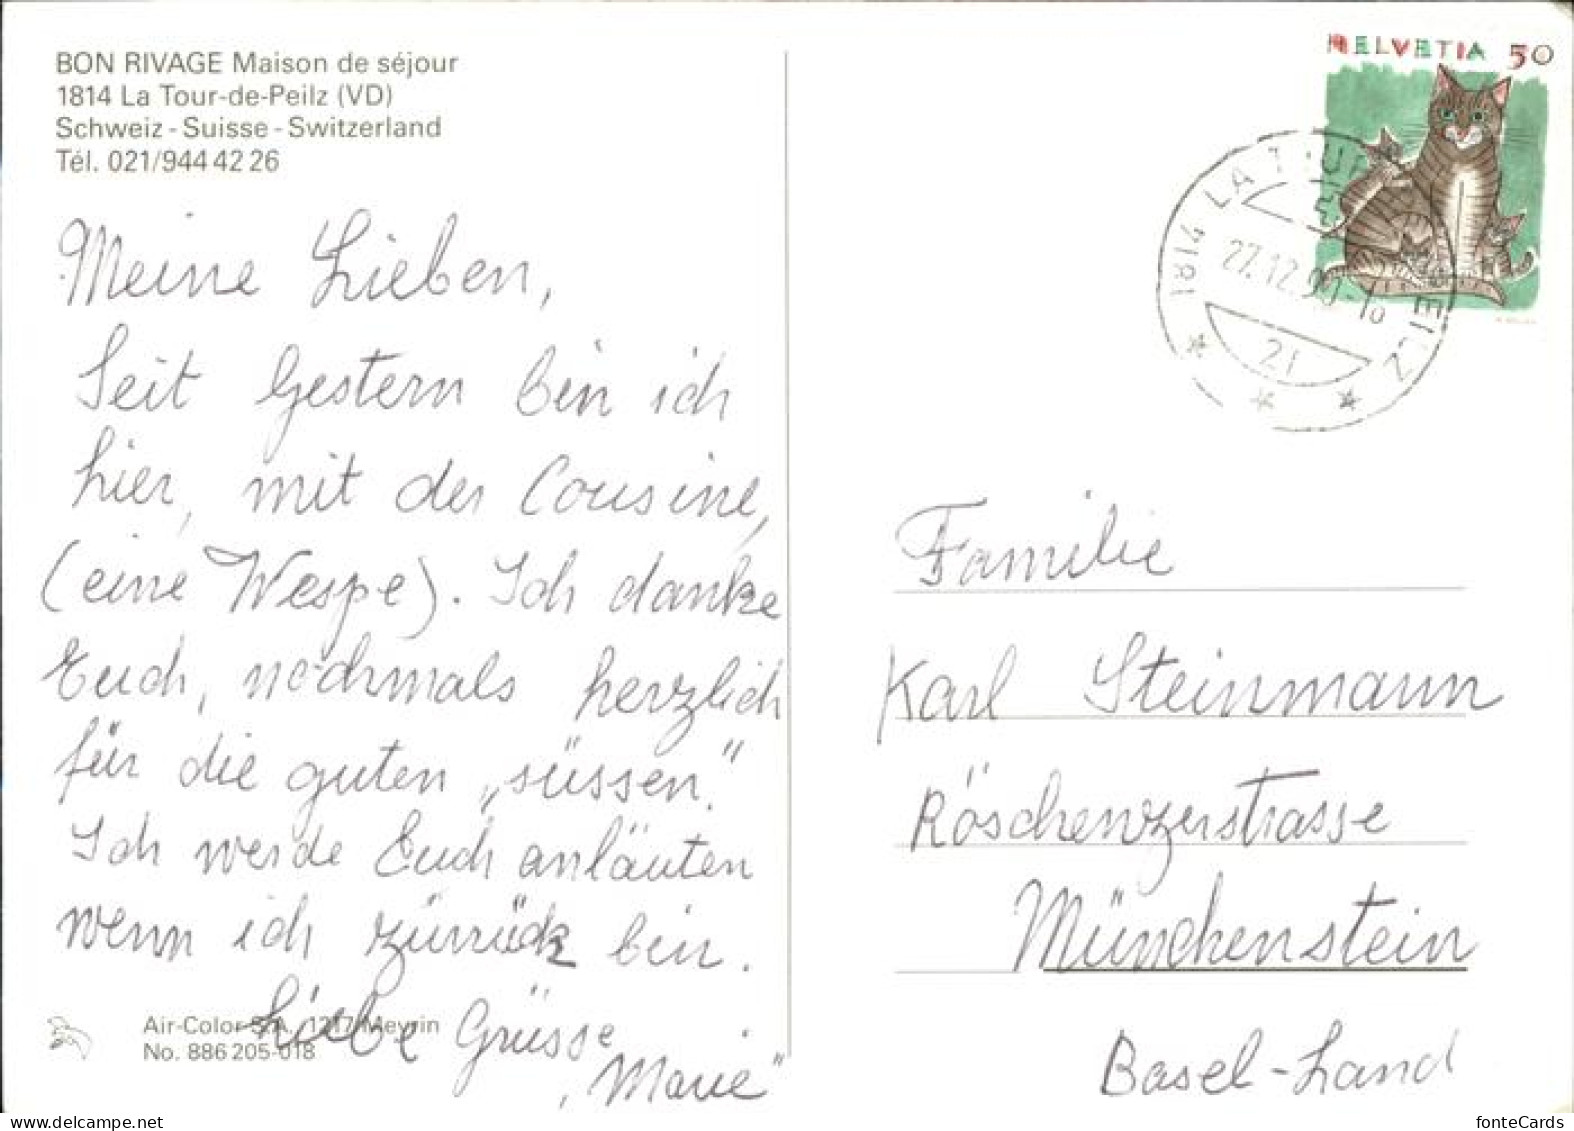 BON RIVAGE Maison de séjour
1814 La Tour-de-Peilz (VD)
Schweiz - Suisse - Switzerland
Tél. 021/944 42 26
Meine Lieben,
Seit Gestern bin ich
hier, mit der Cousine,
(eine Wespe). Ich danke
Euch, nochmals herzlich
für die guten „süssen".
Ich werde Euch anläuten
wenn ich zürrück bin.
Liebe Grüsse
„Marie"
Air-Color S.A., 1217 Meyrin
No. 886 205-018
HELVETIA 50
1814 LA TOUR DE PEILZ
27.12.90-10
21
Familie
Karl Steinmann
Röschenzerstrasse
Münchenstein
Basel-Land
fonteCards
www.delcampe.net